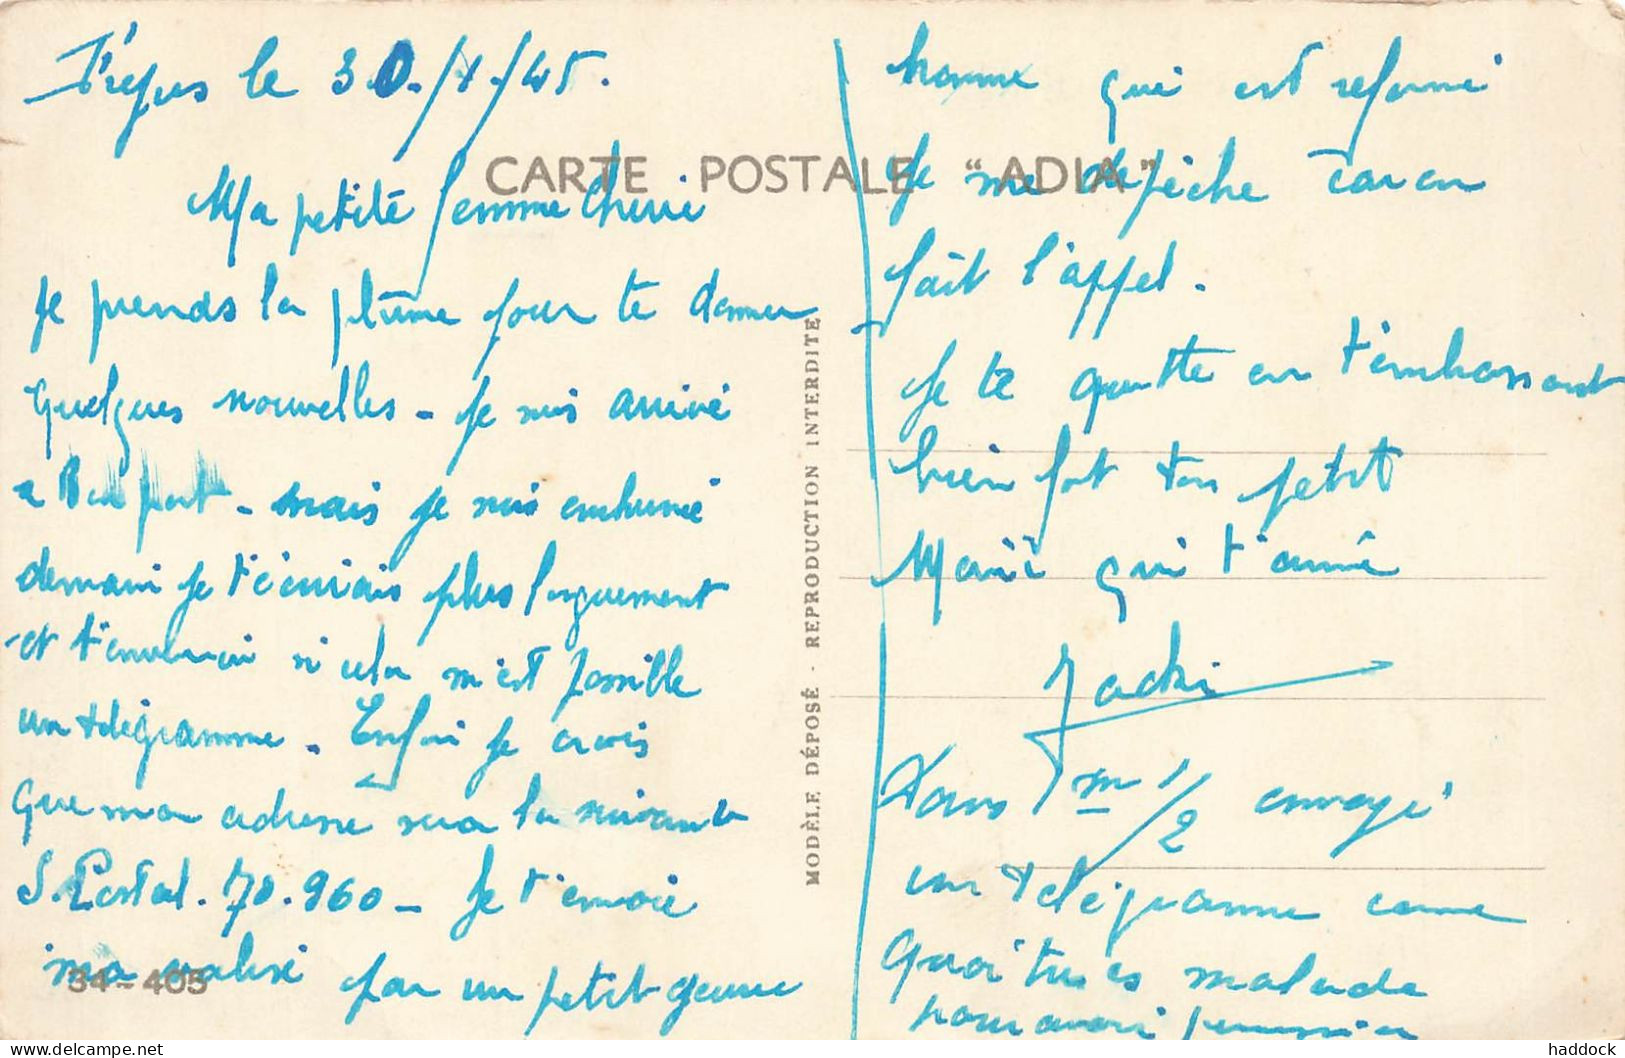 Fréjus le 30./1./45.
CARTE POSTALE "ADIA"
Ma petite femme Cherie
je prends la plume pour te donner
quelques nouvelles - je suis arrivé
a Bon port - mais je suis enrhumé
demain je t'écrirais plus longuement
et t'enverrai si cela m'est possible
un télégramme. Enfin je crois
que mon adresse sera la suivante
S. Postal. 70.960 - Je t'envoie
ma valise par un petit jeune
34-405
MODÈLE DÉPOSÉ - REPRODUCTION INTERDITE
homme qui est reformé
Je me dépèche car on
fait l'appel.
Je te quitte en t'embrassant
bien fort ton petit
Mari qui t'aime
Jacki
Dans 1 m 1/2 envoye
un télégramme comme
quoi tu es malade
pour avoir permission
haddock